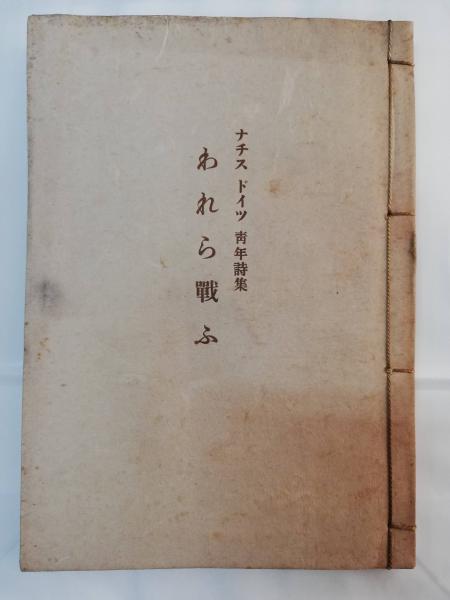 ナチス ドイツ 靑年詩集
われら戰ふ